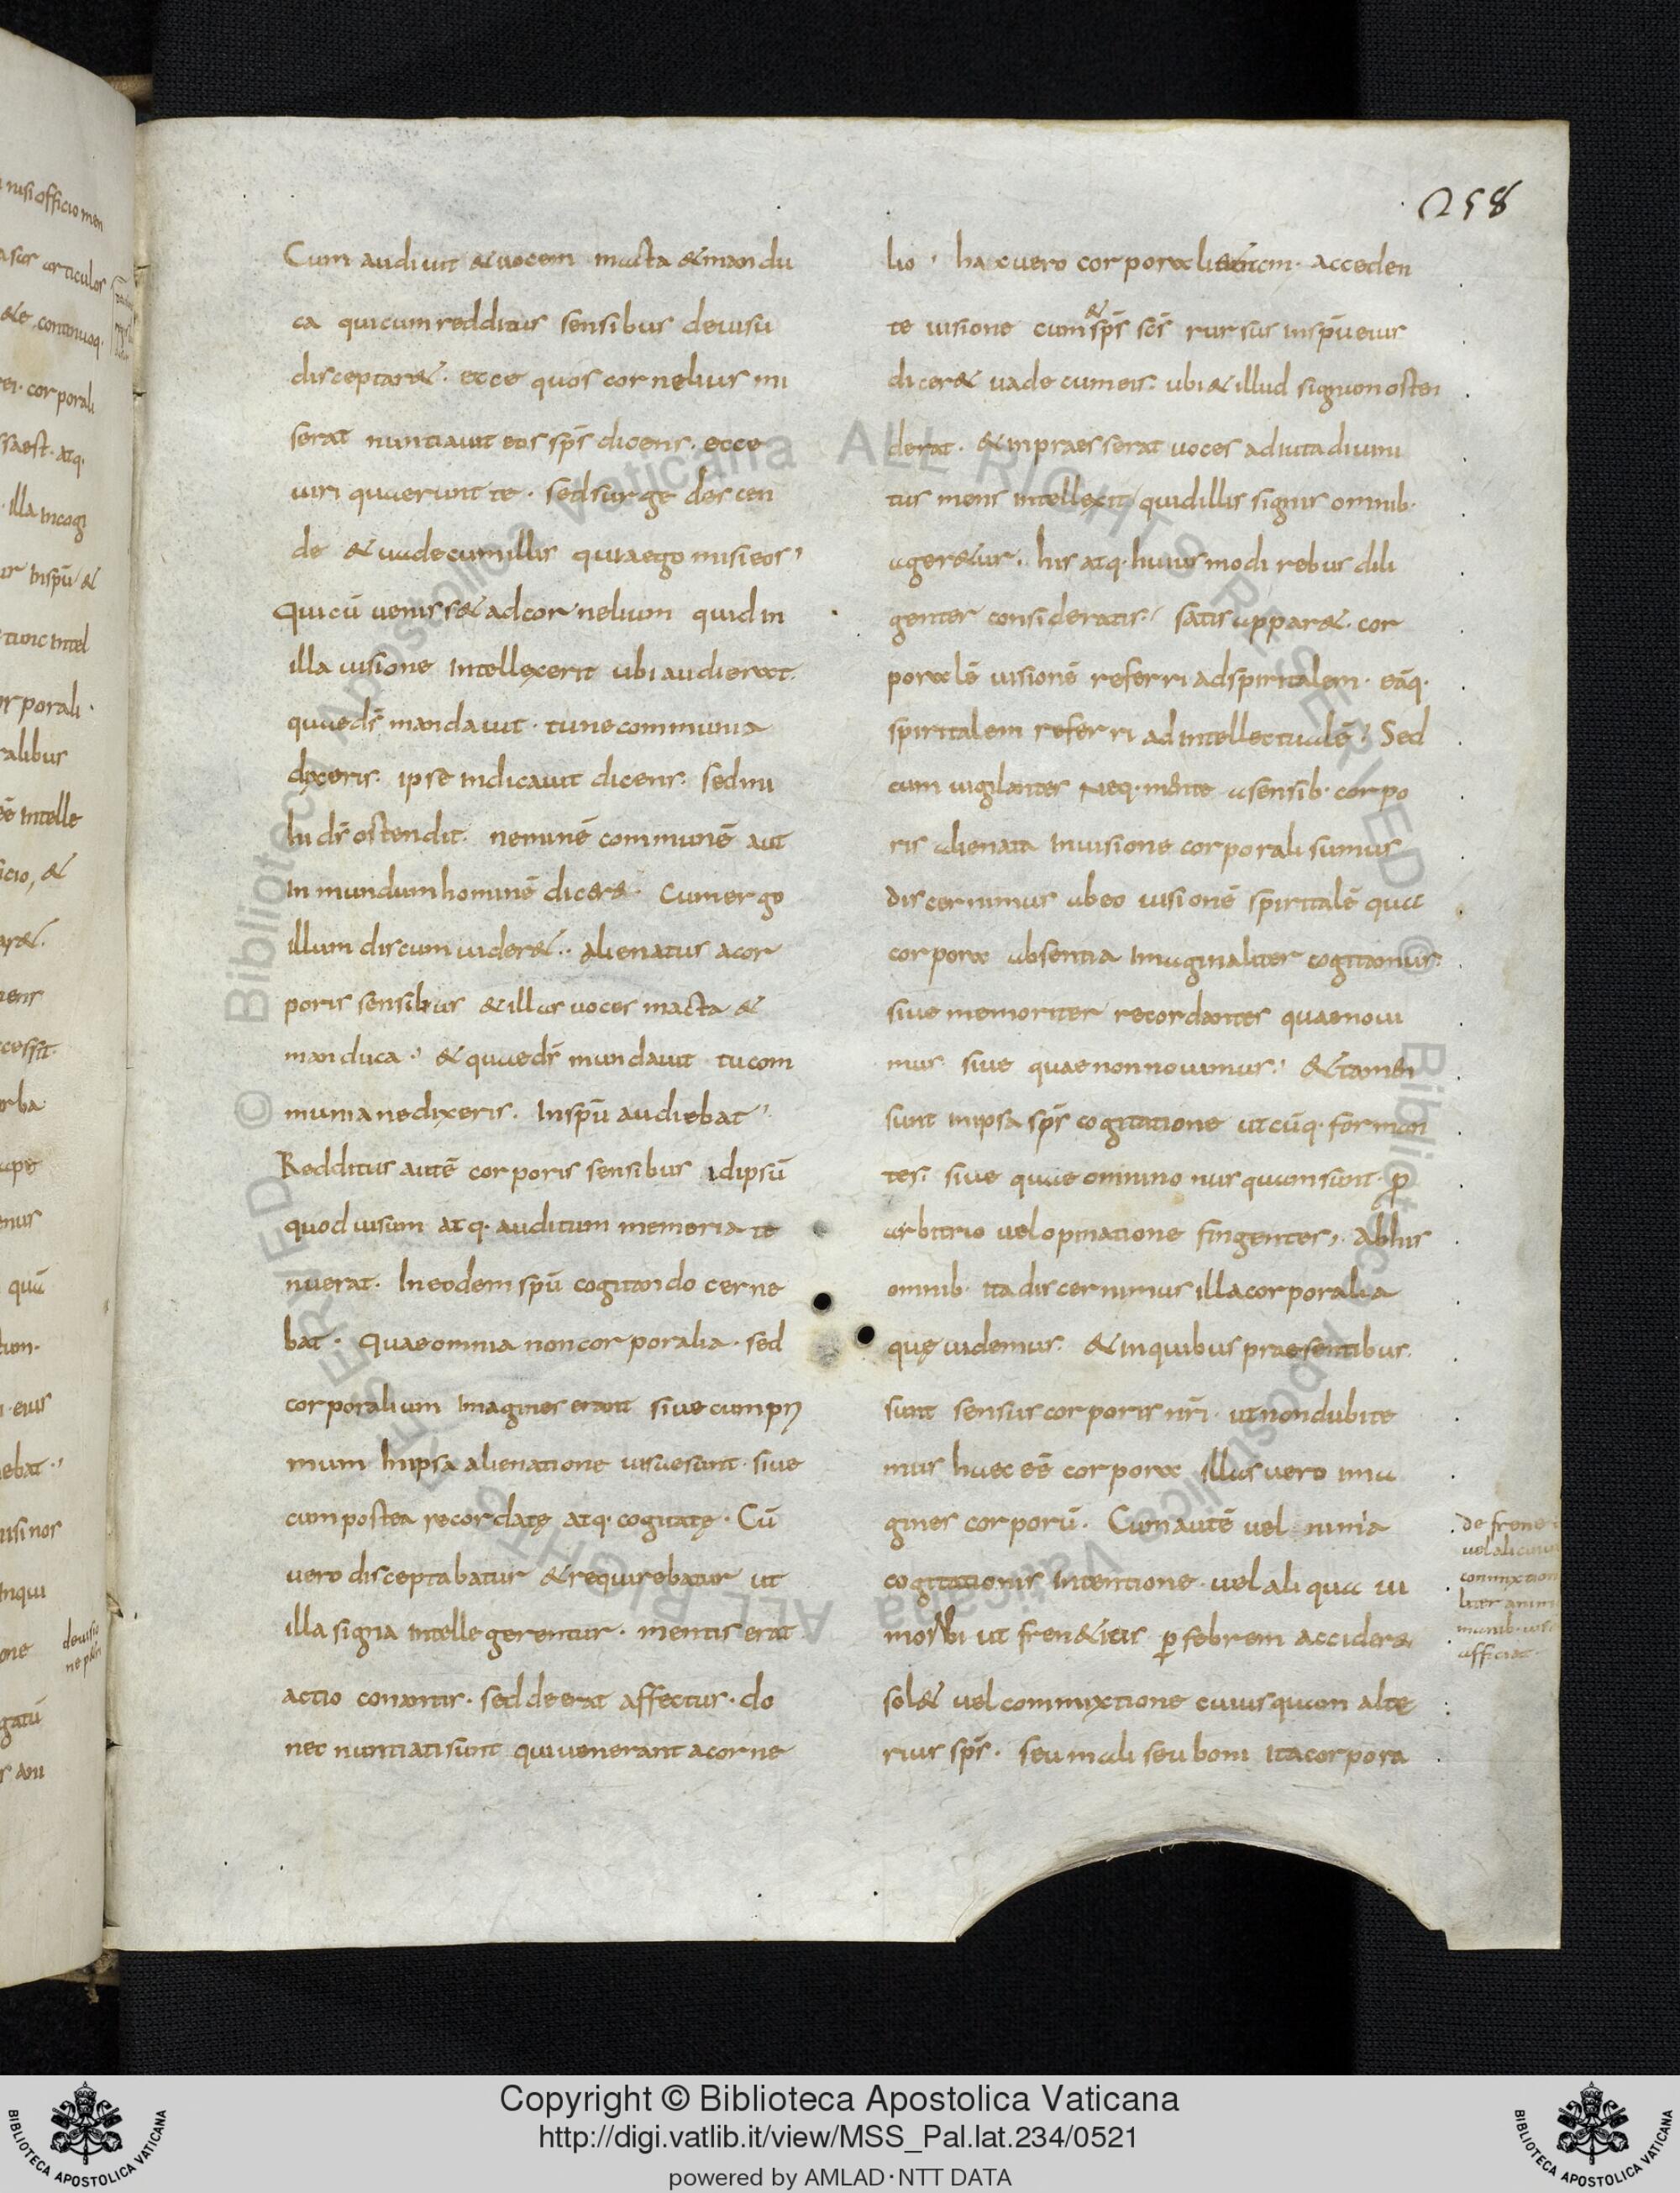 258
Cum audiuit & uocem macta & mandu
ca qui cum redditus sensibus de uisu
disceptar&. ecce quos cornelius mi
serat nuntiauit eos sp̄s dicens. ecce
uiri quaerunt te. sed surge descen
de & uade cum illis quia ego misi eos,
Qui cū ueniss& ad cornelium quid in
illa uisione intellexerit ubi audierat.
quae dr̄ mandauit. tu ne communia
dixeris. ipse indicauit dicens. sed mi
hi dr̄ ostendit. neminē communē aut
in mundum hominē dicere. Cum ergo
illum discum uider&. alienatus a cor
poris sensibus & illas uoces macta &
manduca. & quae dr̄ mundauit tu com
munia ne dixeris. In spū audiebat,
Redditus autē corporis sensibus idipsū
quod uisum atq. auditum memoria te
nuerat. In eodem spū cogitando cerne
bat. Quae omnia non corporalia. sed
corporalium imagines erant siue cum pri
mum in ipsa alienatione uisae sunt. siue
cum postea recordatę atq. cogitatę. Cū
uero disceptabatur & requirebatur ut
illa signa intellegerentur. mentis erat
actio conantis. sed deerat affectus. do
nec nuntiati sunt qui uenerant a corne
lio, hac uero corporali acceden
te uisione cum & sp̄s sc̄s rursus in spū eius
dicer& uade cum eis. ubi & illud signum osten
derat. & inpraesserat uoces adiuta diuini
tus mens intellexit, quid illis signis omnib.
ager&ur. his atq. huius modi rebus dili
genter consideratis. satis appar&. cor
poralē uisionē referri ad spiritalem. eāq.
spiritalem referri ad intellectualē. Sed
cum uigilantes neq. mente a sensib. corpo
ris alienata in uisione corporali sumus
discernimus ab eo uisionē spiritalē qua
corpora absentia imaginaliter cogitamus.
siue memoriter recordantes quae noui
mus siue quae non nouimus. & tamen
sunt in ipsa sp̄s cogitatione utcūq. forman
tes. siue quae omnino nusquam sunt. p
arbitrio uel opinatione fingentes. Ab his
omnib. ita discernimus illa corporalia
quę uidemus. & in quibus praesentibus.
sunt sensus corporis nr̄i. ut non dubite
mus haec eē corpora illas uero ima
gines corporū. Cum autē uel nimia
cogitationis intentione. uel aliqua ui
morbi ut fren&icis p febrem accidere
sol& uel commixtione cuiusquam alte
rius sp̄s. seu mali seu boni ita corpora
de frene
uel alicuius
commixtion
liter anim
afficiat
© Biblioteca Apostolica Vaticana ALL RIGHTS RESERVED © Biblioteca Apostolica Vaticana ALL RIGHTS RESERVED
Copyright © Biblioteca Apostolica Vaticana
http://digi.vatlib.it/view/MSS_Pal.lat.234/0521
powered by AMLAD·NTT DATA
BIBLIOTECA APOSTOLICA VATICANA
BIBLIOTECA APOSTOLICA VATICANA